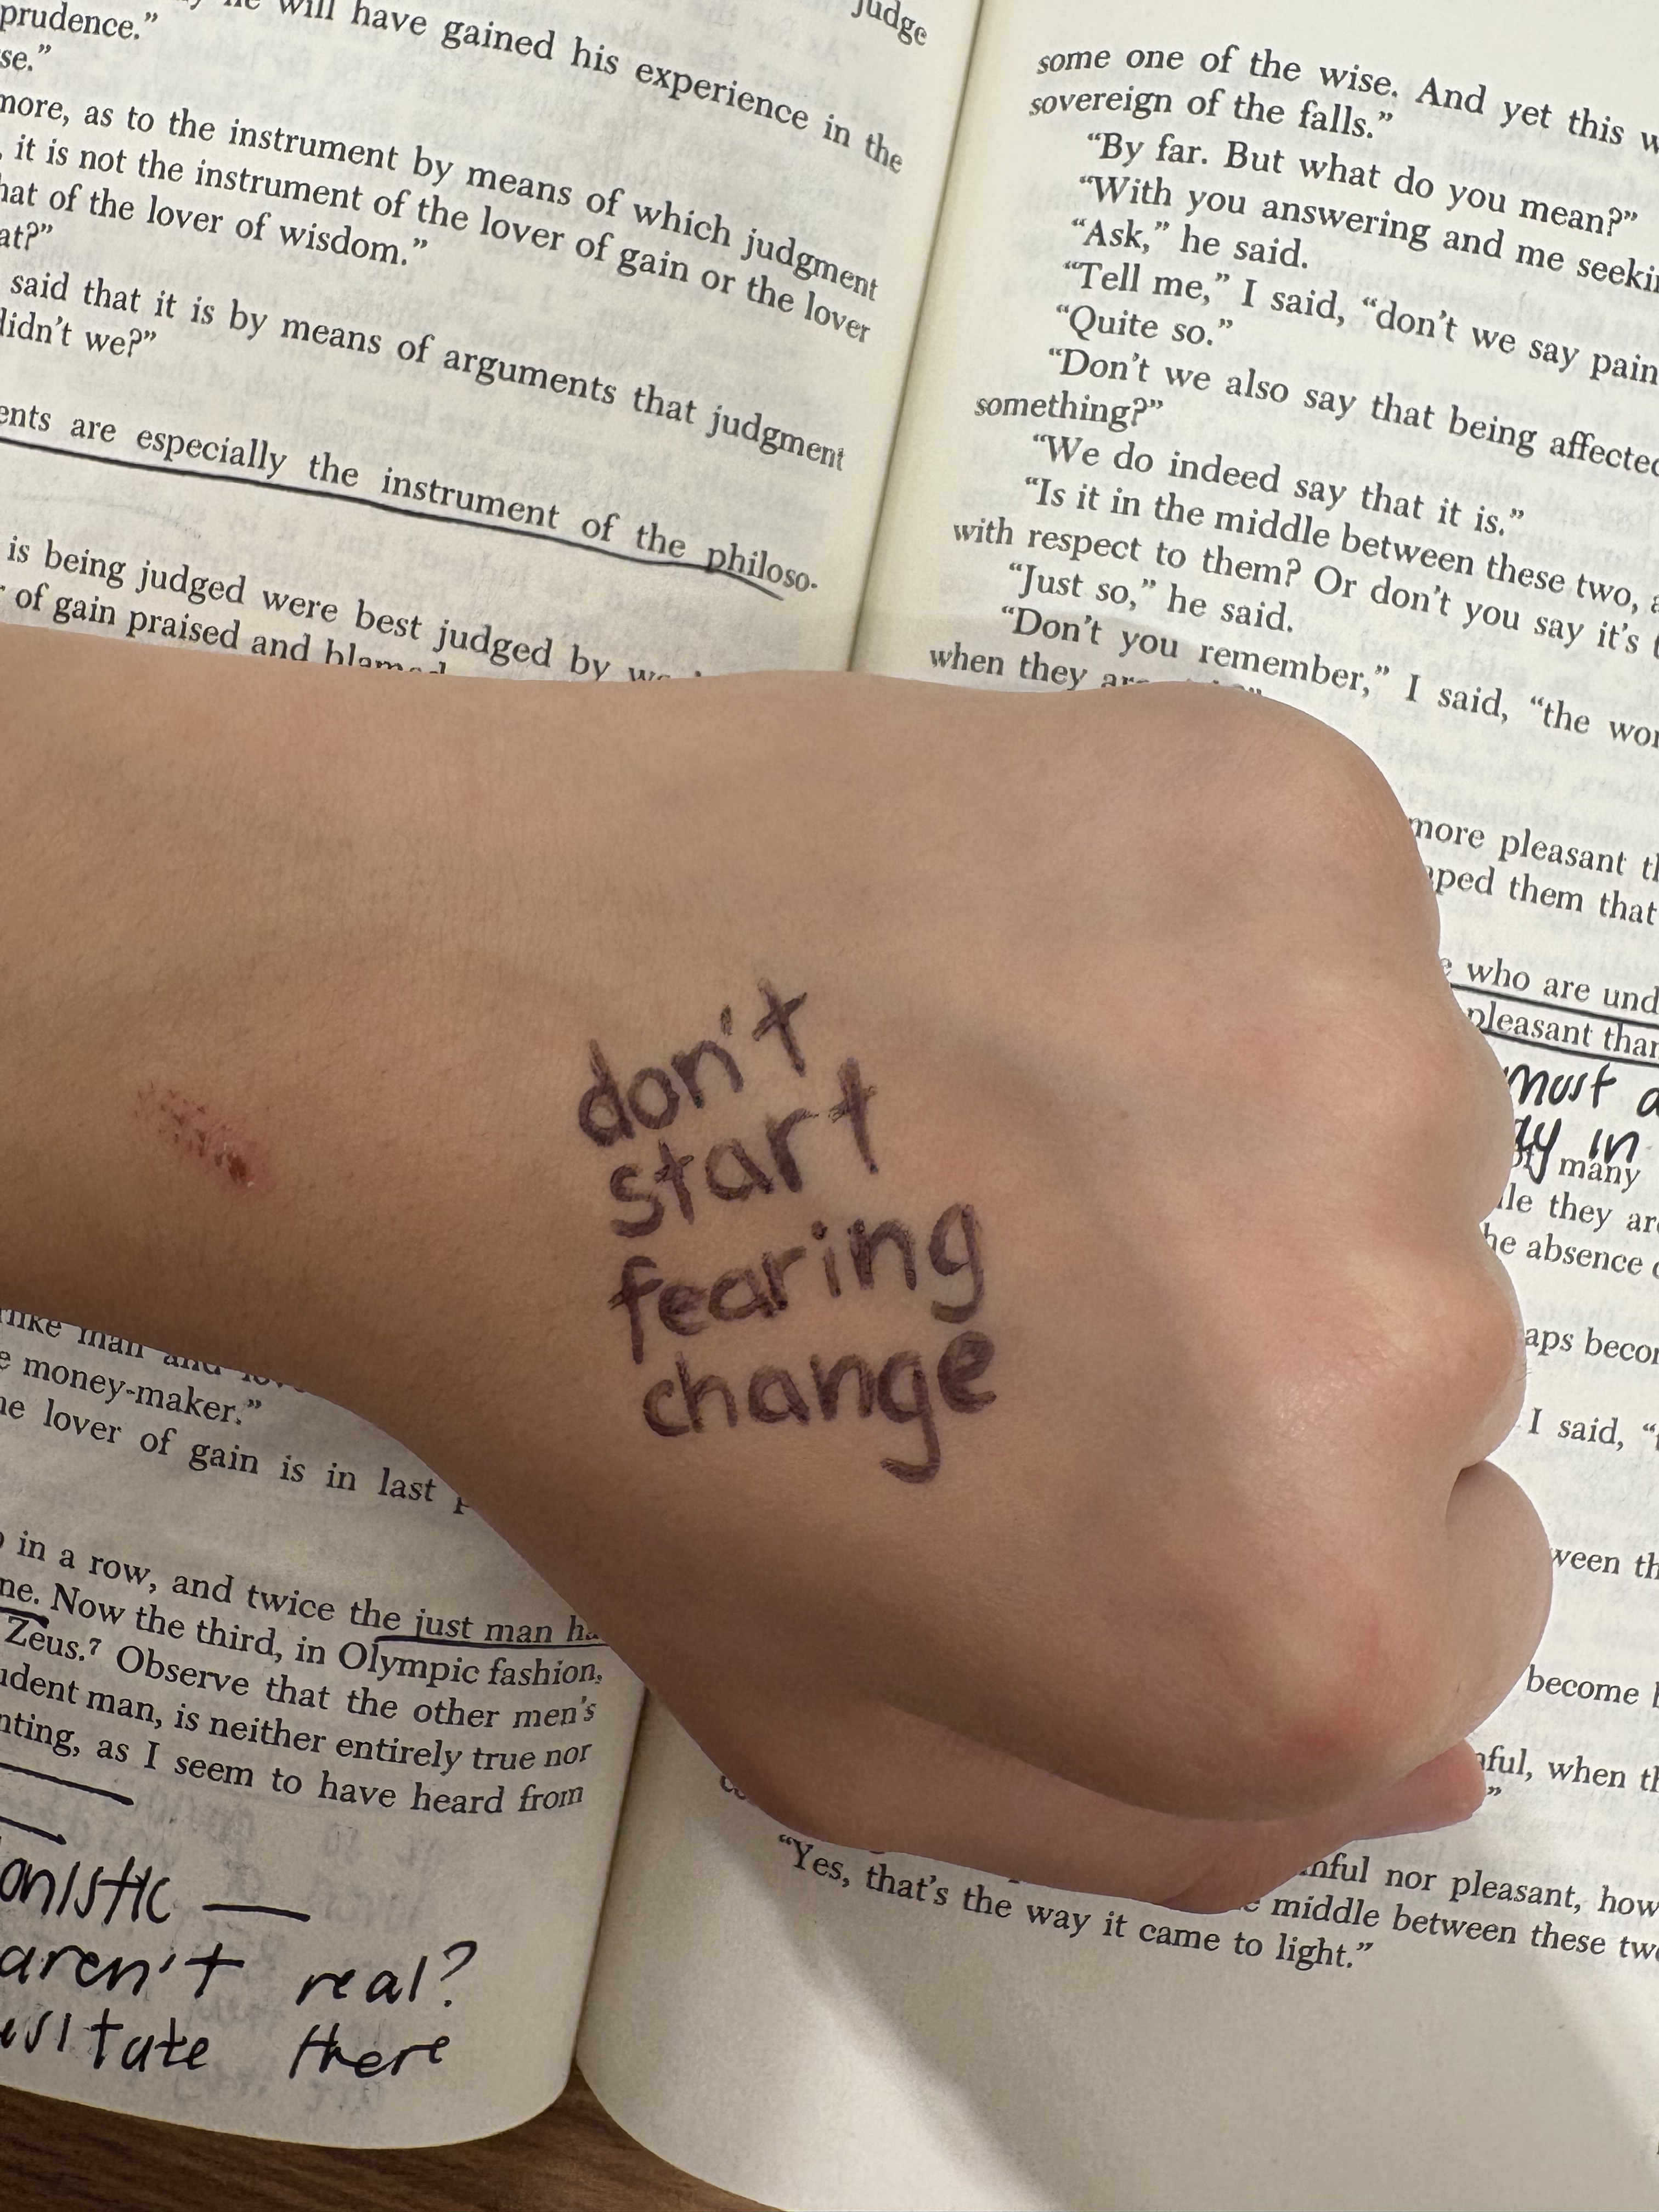 judge
will have gained his experience in the
prudence."
se."
more, as to the instrument by means of which judgment
, it is not the instrument of the lover of gain or the lover
hat of the lover of wisdom."
at?"
said that it is by means of arguments that judgment
didn't we?"
ents are especially the instrument of the philoso-
is being judged were best judged by
of gain praised and blamed
don't
start
fearing
change
e money-maker."
he lover of gain is in last
in a row, and twice the just man ha
ne. Now the third, in Olympic fashion,
Zeus.⁷ Observe that the other men's
udent man, is neither entirely true nor
nting, as I seem to have heard from
onistic —
aren't real?
there
some one of the wise. And yet this w
sovereign of the falls."
"By far. But what do you mean?"
"With you answering and me seekin
"Ask," he said.
"Tell me," I said, "don't we say pain
"Quite so."
"Don't we also say that being affected
something?"
"We do indeed say that it is."
"Is it in the middle between these two, a
with respect to them? Or don't you say it's t
"Just so," he said.
"Don't you remember," I said, "the wor
when they are
more pleasant th
aped them that
e who are und
pleasant than
most a
ay in
many
ile they are
he absence o
aps becom
I said, "t
ween th
become b
nful, when th
"
inful nor pleasant, how
e middle between these two
"Yes, that's the way it came to light."